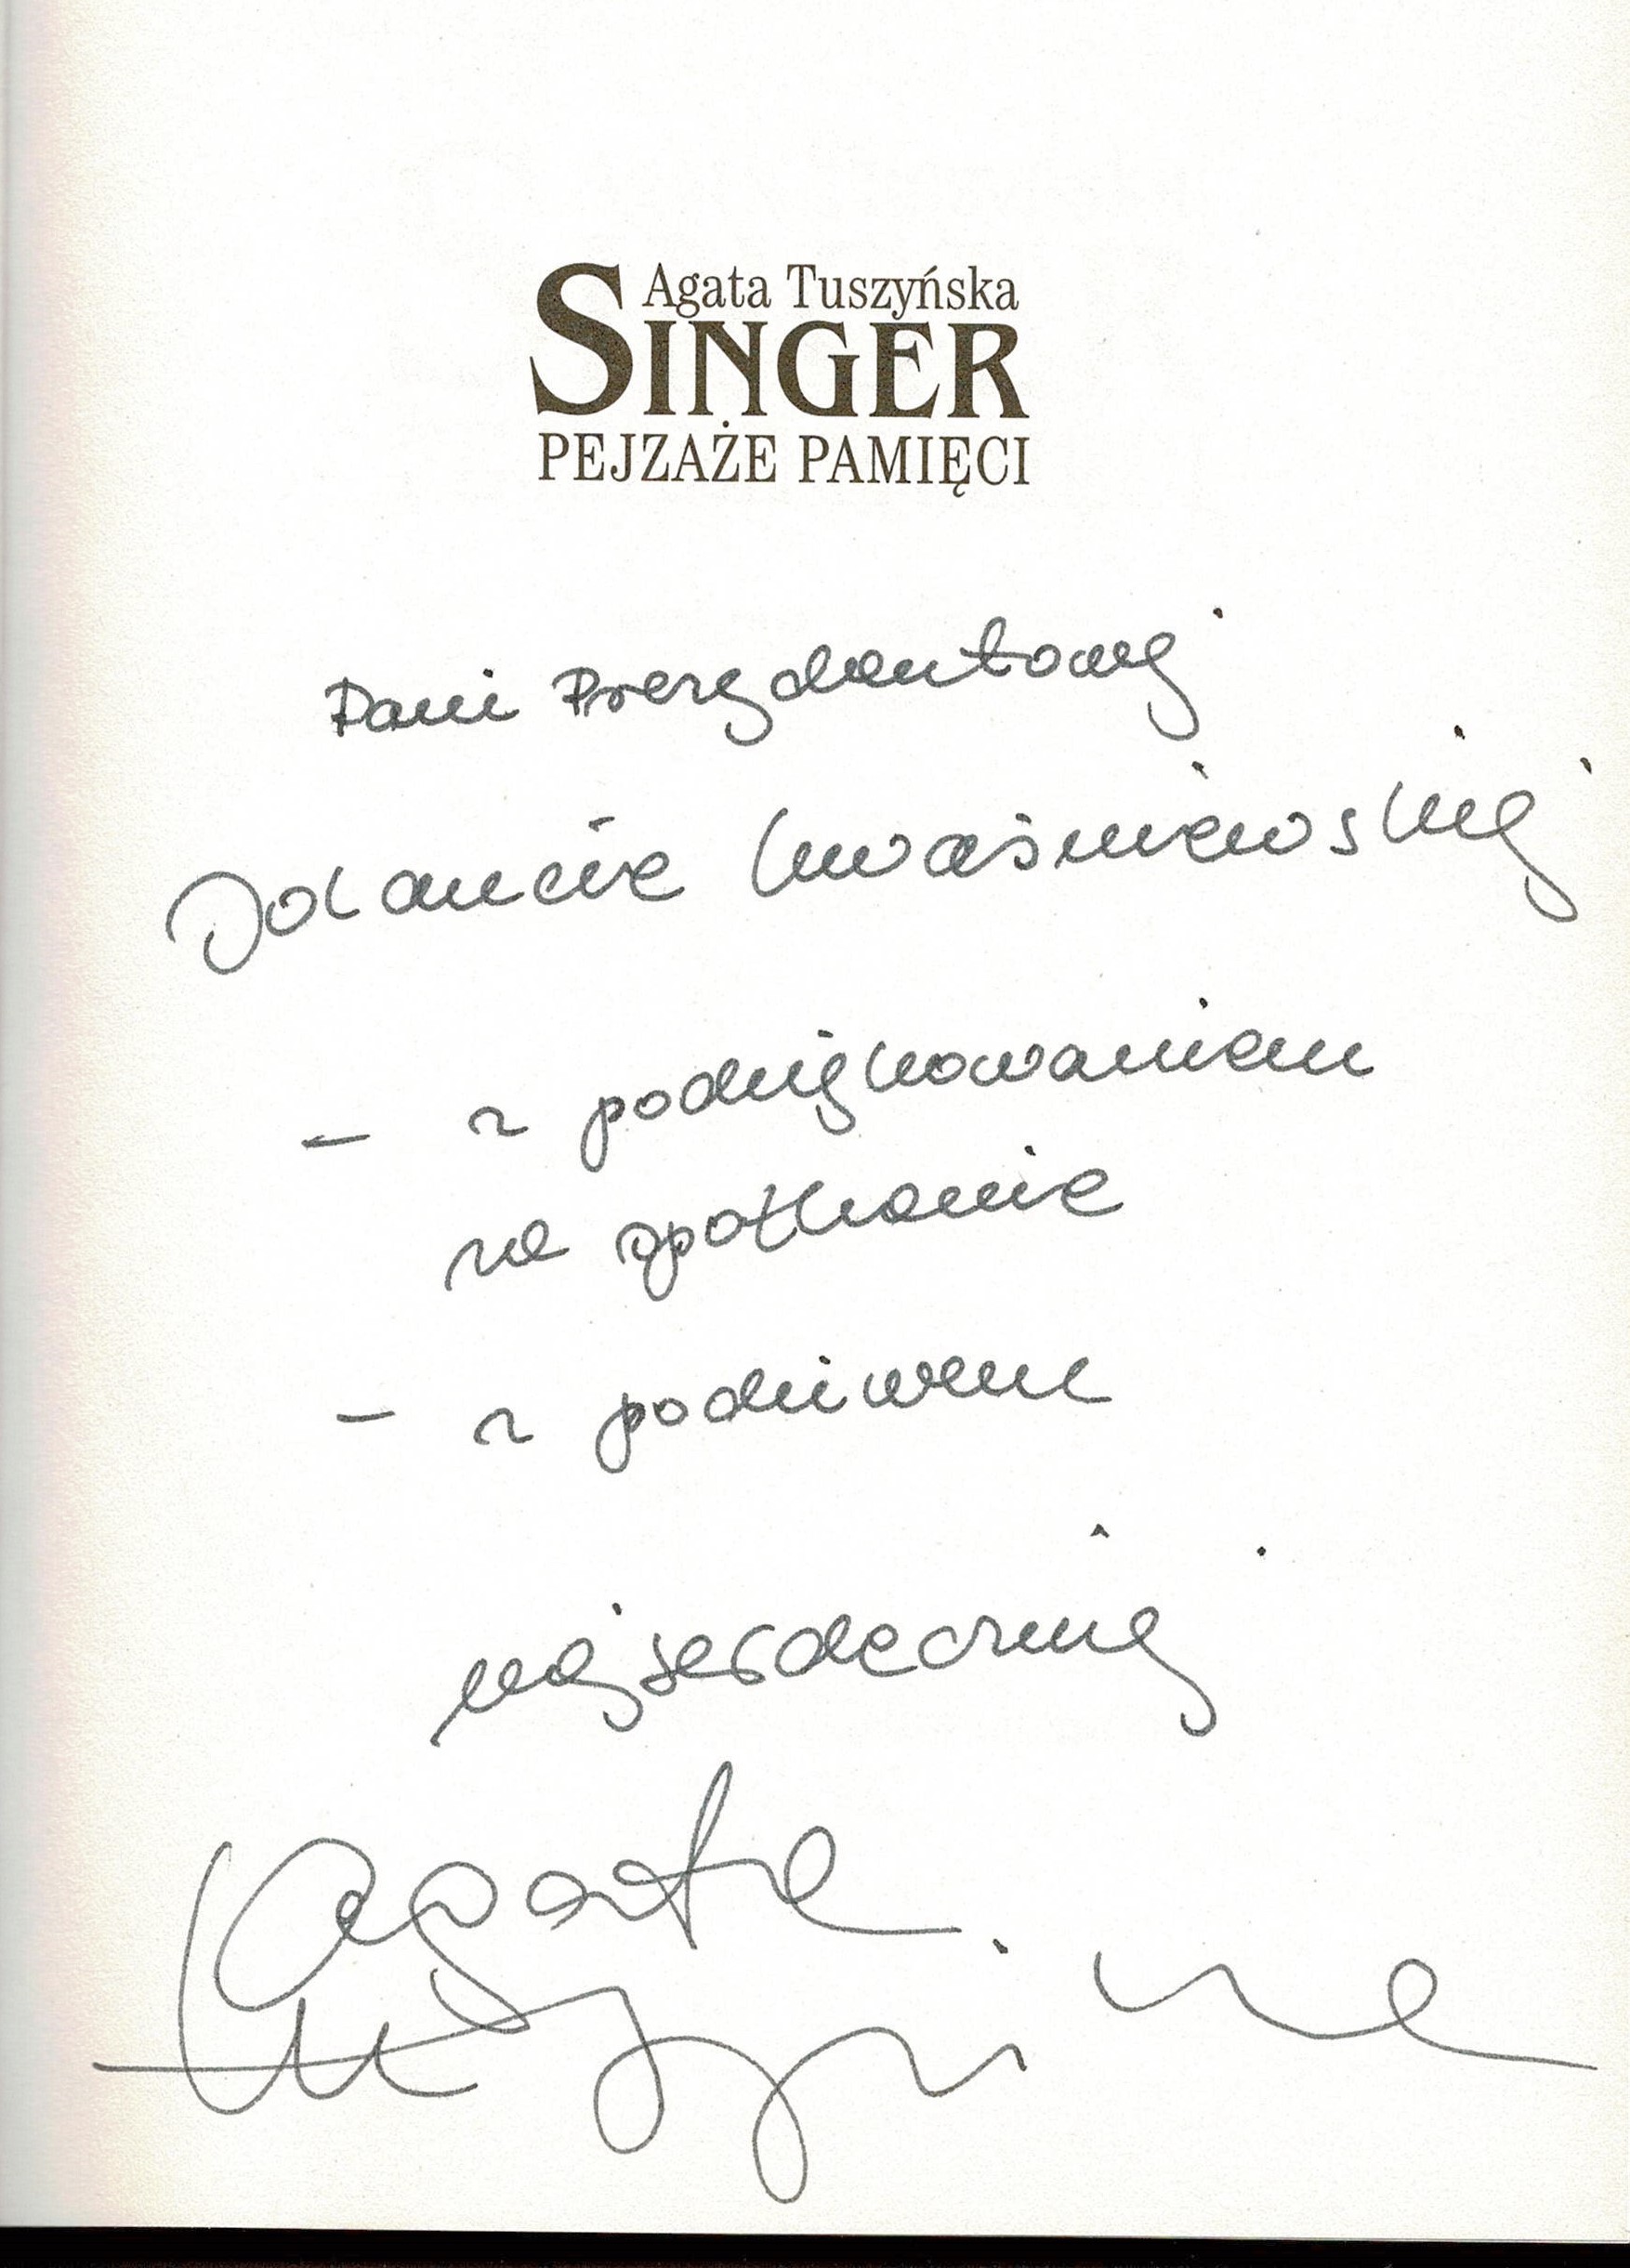 Agata Tuszyńska
SINGER
PEJZAŻE PAMIĘCI
Pani Prezydentowej
Jolancie Kwaśniewskiej
– z podziękowaniem
za spotkanie
– z podziwem
najserdeczniej
Agata
Tuszyńska